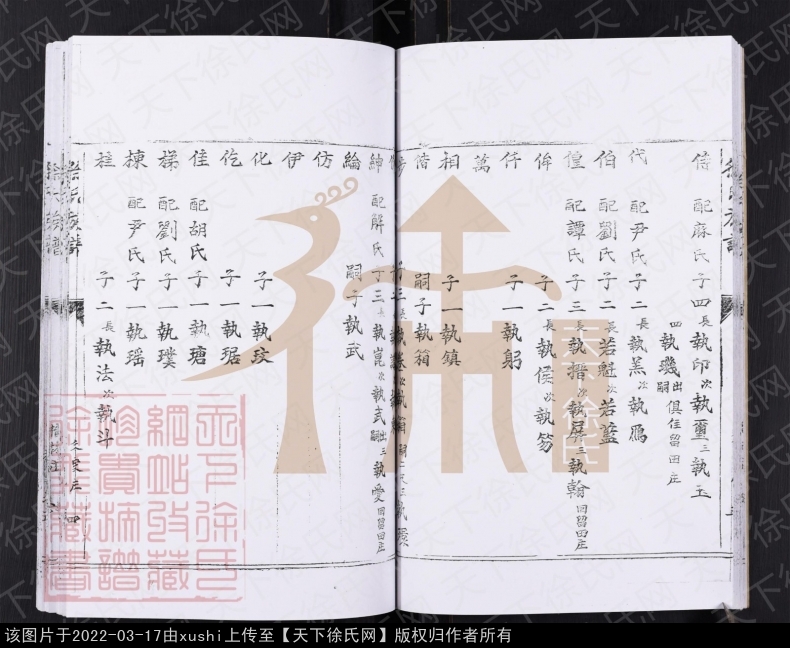 侍 配麻氏 子四 長執印 次執璽 三執玉
四執璣 出嗣 俱住留田庄
代 配尹氏 子二 長執羔 次執鴈
伯 配劉氏 子二 長若魁 次若籃
偟 配譚氏 子三 長執搢 次執屏 三執翰 回留田庄
侔 子二 長執侯 次執笏
仟 子一 執躬
萬
相 子一 執鎮
偕 嗣子執箱
紳 配解氏 子三 長執崑 次執武 出嗣 三執愛 回留田庄
綸 嗣子執武
仿
伊
化 子一 執玟
仡 子一 執琚
佳 配胡氏 子一 執瑭
梯 配劉氏 子一 執璞
棟 配尹氏 子一 執瑶
柱 子二 長執法 次執斗
徐氏族譜
天下徐氏网
天下徐氏網站收藏
珍貴摘譜
徐雁藏書
该图片于2022-03-17由xushi上传至【天下徐氏网】版权归作者所有